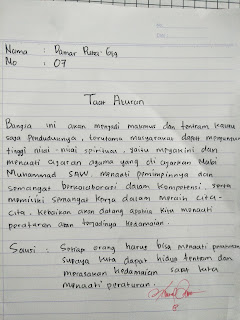 Nama : Damar Putra Gia
No : 07
Taat Aturan
Bangsa ini akan menjadi makmur dan tentram kalau
saya penduduknya, terutama masyarakat dapat menjunjung
tinggi nilai-nilai spiritual, yaitu meyakini dan
menaati ajaran agama yang di ajarkan Nabi
Muhammad SAW, menaati pemimpinnya dan
semangat berkolaborasi dalam kompetensi, serta
memiliki semangat kerja dalam meraih cita-
cita. Kebaikan akan datang apabila kita menaati
peraturan akan terjadinya kedamaian.
Solusi : Setiap orang harus bisa menaati peraturan
supaya kita dapat hidup tentram dan
merasakan kedamaian saat kita
menaati peraturan.